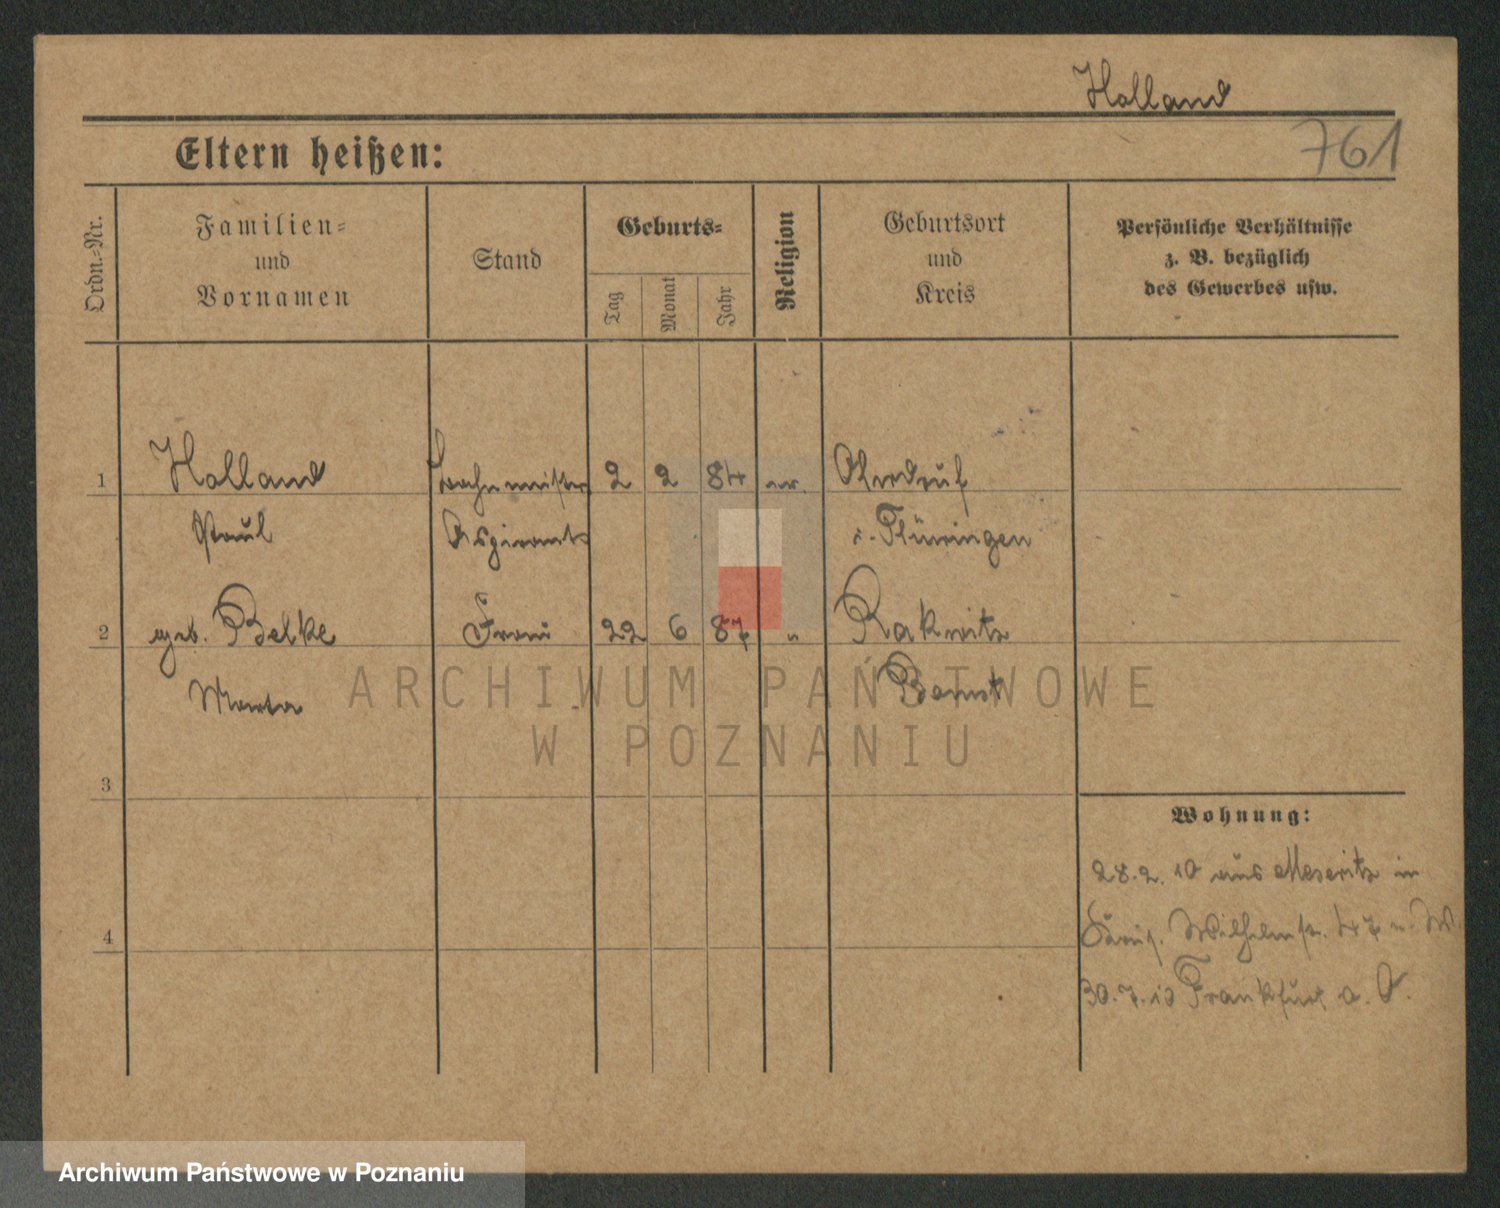 Holland
761
Eltern heißen:
Ordn.-Nr.
Familien-
und
Vornamen
Stand
Geburts-
Tag
Monat
Jahr
Religion
Geburtsort
und
Kreis
Persönliche Verhältnisse
z. B. bezüglich
des Gewerbes usw.
1 Holland 2 2 84 ev. Ohrdruf
Paul Aspirant i. Thüringen
2 geb. Belke Frau 22 6 87 " Rakwitz
Marta Bomst
ARCHIWUM PAŃSTWOWE
W POZNANIU
3
Wohnung:
28.2.10 aus Meseritz in
Wilhelmstr. 47
4
30.7.10 Frankfurt a. O.
Archiwum Państwowe w Poznaniu